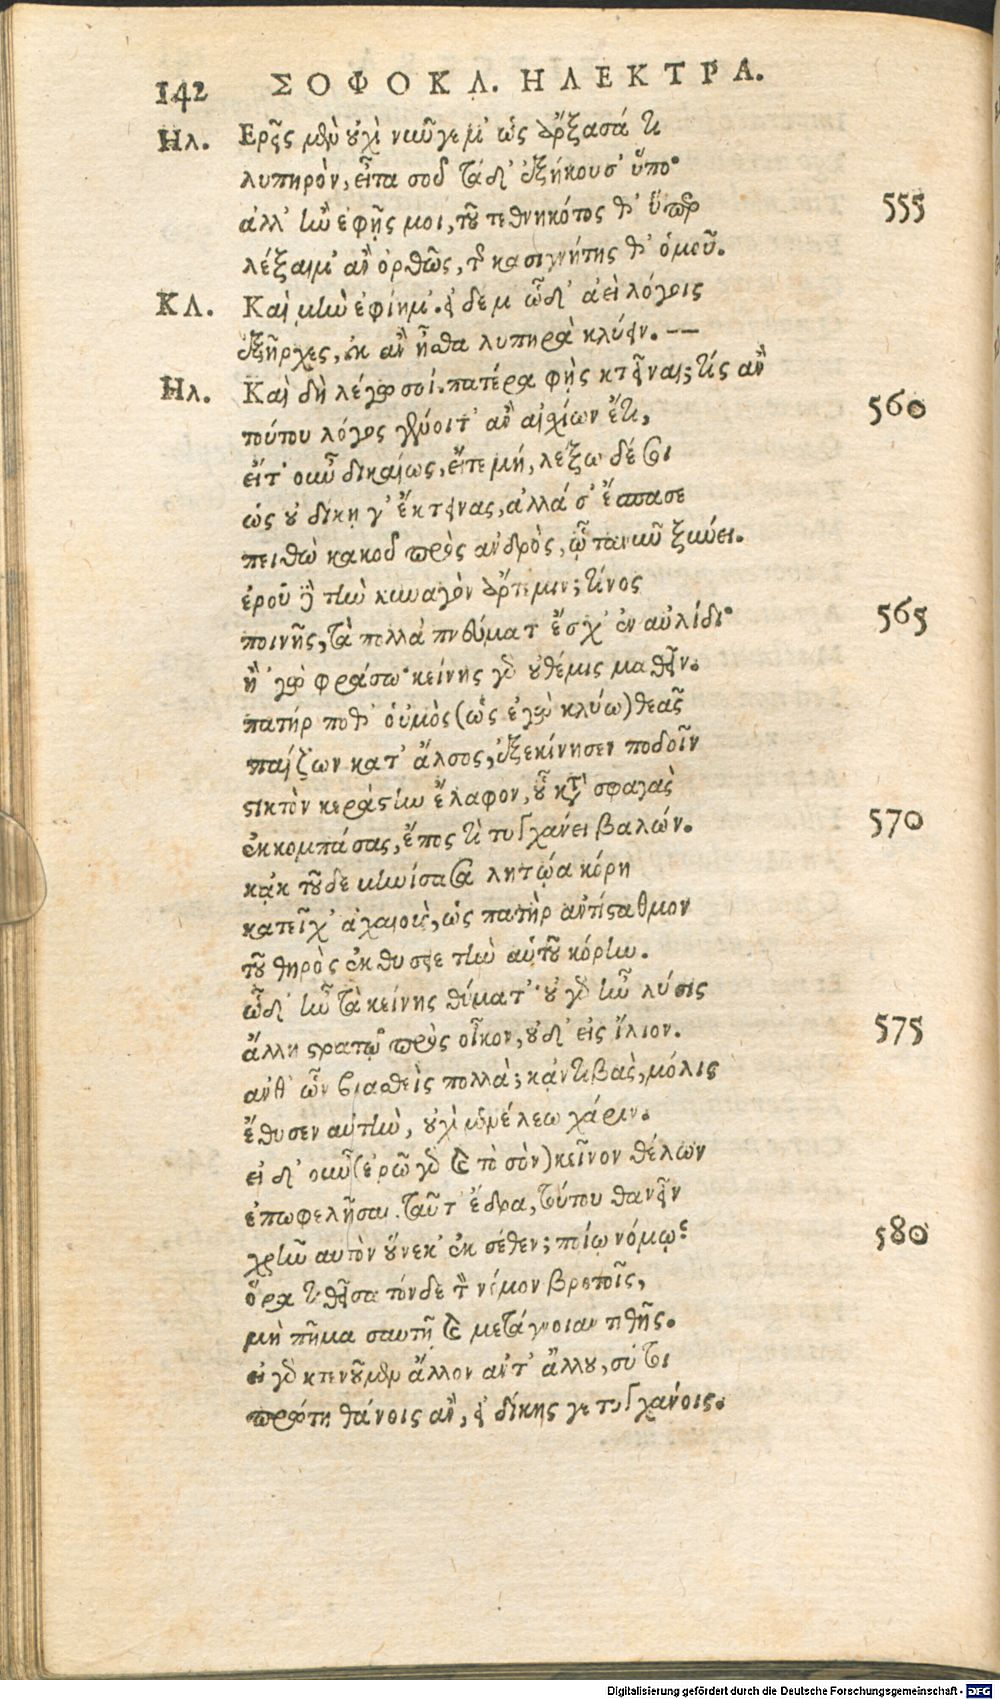 142 ΣΟΦΟΚΛ. ΗΛΕΚΤΡΑ.
Ηλ. Ερεῖς μὲν οὐχὶ νῦν γέ μ' ὡς ἄρξασά τι
λυπηρὸν, εἶτα σοῦ τάδ' ἐξήκουσ' ὕπο·
ἀλλ' ἢν ἐφῇς μοι, τοῦ τεθνηκότος θ' ὕπερ 555
λέξαιμ' ἂν ὀρθῶς, τῆς κασιγνήτης θ' ὁμοῦ.
ΚΛ. Καὶ μὴν ἐφίημ'. εἰ δέ μ' ὧδ' ἀεὶ λόγοις
ἐξῆρχες, οὐκ ἂν ἦσθα λυπηρὰ κλύειν. --
Ηλ. Καὶ δὴ λέγω σοί. πατέρα φῂς κτεῖναι; τίς ἂν
τούτου λόγος γένοιτ' ἂν αἰσχίων ἔτι, 560
εἴτ' οὖν δικαίως, εἴτε μή, λέξω δέ σοι
ὡς οὐ δίκῃ γ' ἔκτεινας, ἀλλά σ' ἔσπασε
πειθὼ κακοῦ πρὸς ἀνδρὸς, ᾧ τανῦν ξύνει.
ἐροῦ δὲ τὴν κυναγὸν ἄρτεμιν; τίνος
ποινῆς, τὰ πολλὰ πνεύματ' ἔσχ' ἐν αὐλίδι· 565
ἢ 'γὼ φράσω· κείνης γὰρ οὐ θέμις μαθεῖν.
πατήρ ποθ' οὑμὸς (ὡς ἐγὼ κλύω) θεᾶς
παίζων κατ' ἄλσος, ἐξεκίνησεν ποδοῖν
στικτὸν κεράστην ἔλαφον, οὗ κατὰ σφαγὰς
ἐκκομπάσας, ἔπος τι τυγχάνει βαλών. 570
κἀκ τοῦδε μηνίσασα λητῴα κόρη
κατεῖχ' ἀχαιοὺς, ὡς πατὴρ ἀντίσταθμον
τοῦ θηρὸς ἐκθύσειε τὴν αὑτοῦ κόρην.
ὧδ' ἦν τὰ κείνης θύματ'· οὐ γὰρ ἦν λύσις
ἄλλη στρατῷ πρὸς οἶκον, οὐδ' εἰς ἴλιον. 575
ἀνθ' ὧν βιασθεὶς πολλὰ; κἀντιβὰς, μόλις
ἔθυσεν αὐτὴν, οὐχὶ μενέλεω χάριν.
εἰ δ' οὖν (ἐρῶ γὰρ καὶ τὸ σὸν) κεῖνον θέλων
ἐπωφελῆσαι. ταῦτ' ἔδρα, τούτου θανεῖν
χρῆν αὐτὸν οὕνεκ' ἐκ σέθεν; ποίῳ νόμῳ; 580
ὅρα τιθεῖσα τόνδε τὸν νόμον βροτοῖς,
μὴ πῆμα σαυτῇ καὶ μετάγνοιαν τιθῇς.
εἰ γὰρ κτενοῦμεν ἄλλον ἀντ' ἄλλου, σύ τοι
πρώτη θάνοις ἂν, εἰ δίκης γε τυγχάνοις.
Digitalisierung gefördert durch die Deutsche Forschungsgemeinschaft - DFG